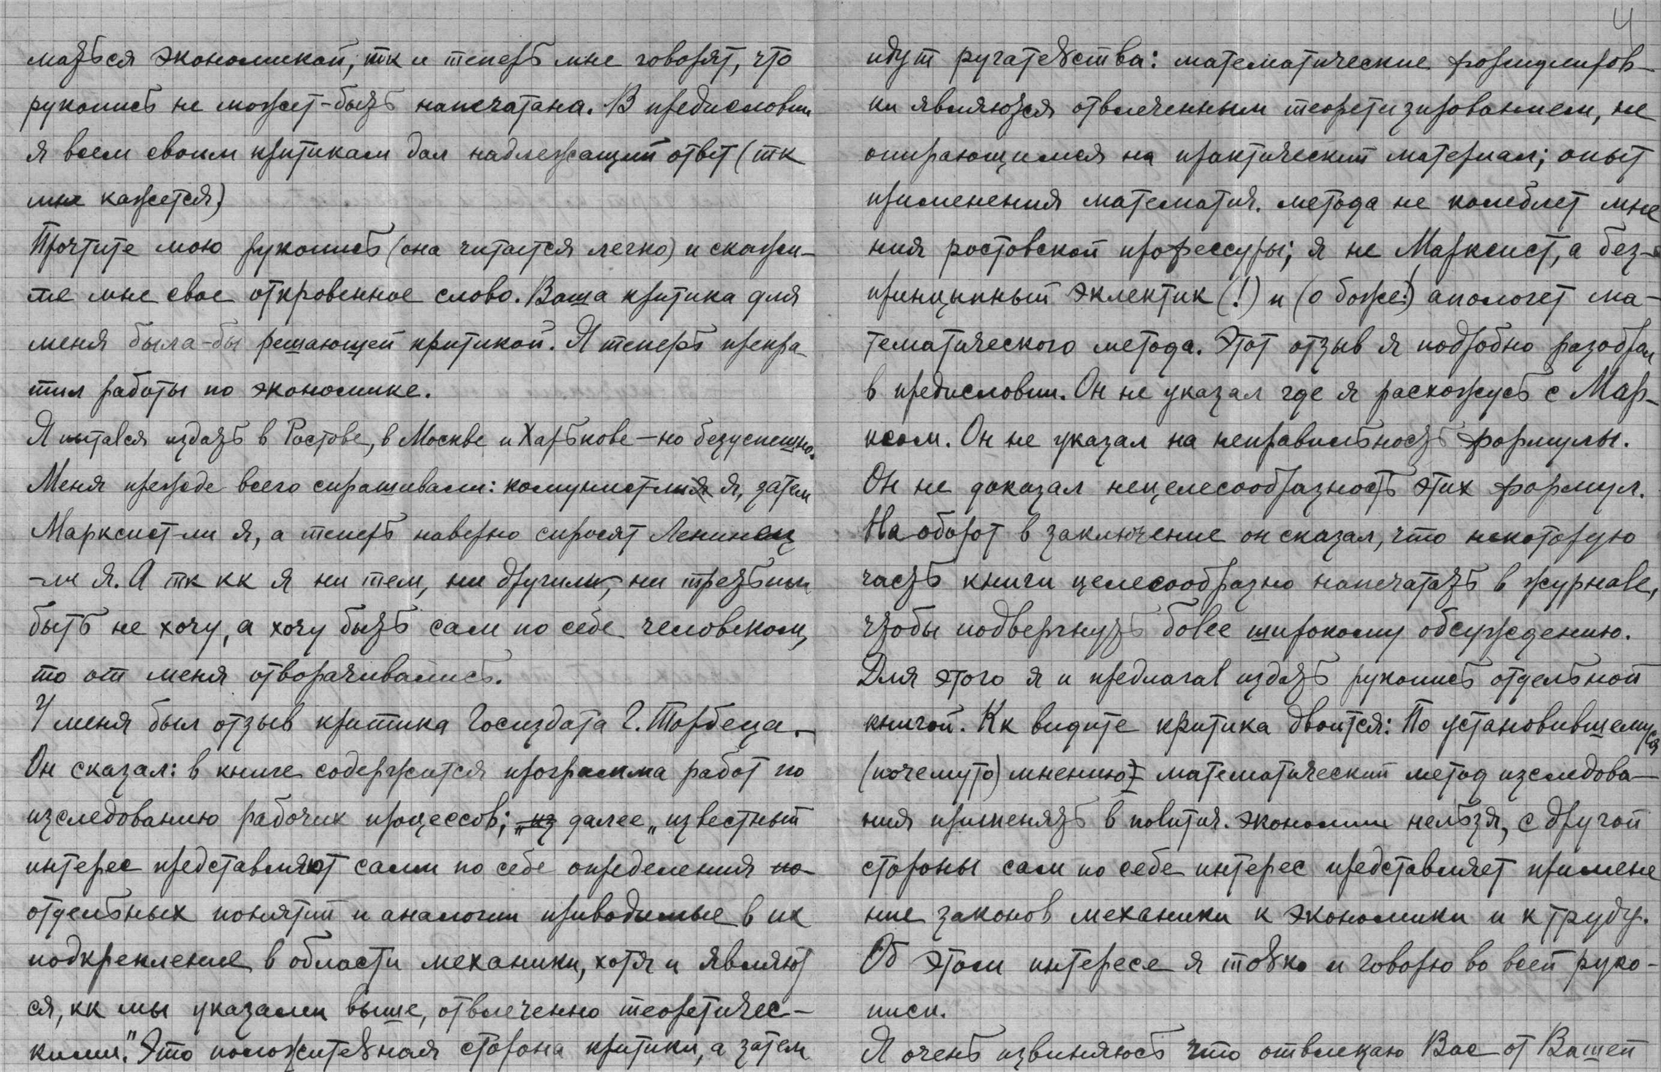 маться экономикой, тк и теперь мне говорят, что
рукопись не может-быть напечатана. В предисловии
я всем своим критикам дал надлежащий ответ (тк
мне кажется)
Прочтите мою рукопись (она читается легко) и скажи-
те мне свое откровенное слово. Ваша критика для
меня была-бы решающей критикой. Я теперь прекра-
тил работы по экономике.
Я пытался издать в Ростове, в Москве и Харькове – но безуспешно.
Меня прежде всего спрашивали: коммунист-ли я, затем
Марксист-ли я, а теперь наверно спросят Ленинец
-ли я. А тк кк я ни тем, ни другим, ни третьим
быть не хочу, а хочу быть сам по себе человеком,
то от меня отворачивались.
У меня был отзыв критика Госиздата Г. Торбеца.
Он сказал: в книге содержится программа работ по
изследованию рабочих процессов; далее „известный
интерес представляют сами по себе определения
отдельных понятий и аналогии приводимые в их
подкрепление в области механики, хотя и являют
ся, кк мы указали выше, отвлеченно теоретичес-
кими." Это положительная сторона критики, а затем
4
идут ругательства: математические формулиров-
ки являются отвлеченным теоретизированием, не
опирающимся на практический материал; опыт
применения математич. метода не колеблет мне
ния ростовской профессуры; я не Марксист, а без-
принцыпный эклектик (!) и (о боже!) апологет ма-
тематического метода. Этот отзыв я подробно разобрал
в предисловии. Он не указал где я расхожусь с Мар-
ксом. Он не указал на неправильность формулы.
Он не доказал нецелесообразность этих формул.
На оборот в заключение он сказал, что некоторую
часть книги целесообразно напечатать в журнале,
чтобы подвергнуть более широкому обсуждению.
Для этого я и предлагал издать рукопись отдельной
книгой. Кк видите критика двоится: По установившемуся
(почему то) мнению математический метод изследова-
ния применять в политич. экономии нельзя, с другой
стороны сам по себе интерес представляет примене
ние законов механики к экономики и к труду.
Об этом интересе я только и говорю во всей руко-
писи.
Я очень извиняюсь что отвлекаю Вас от Вашей